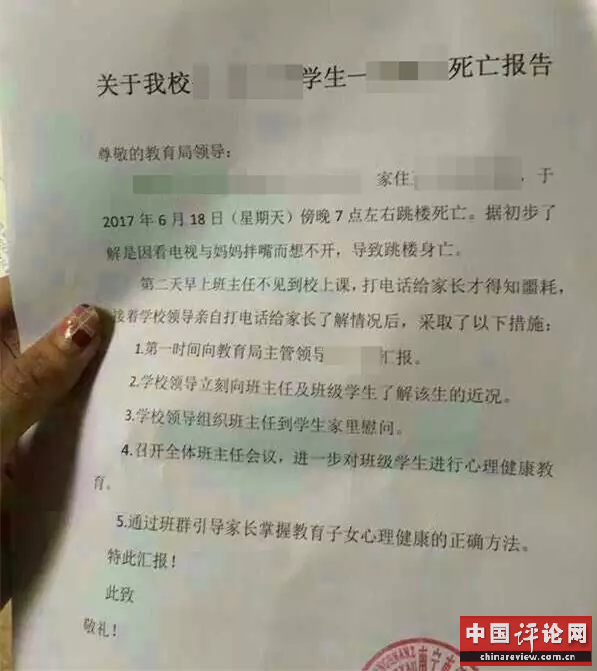 关于我校 学生— 死亡报告
尊敬的教育局领导：
家住 ，于
2017年6月18日（星期天）傍晚7点左右跳楼死亡。据初步了
解是因看电视与妈妈拌嘴而想不开，导致跳楼身亡。
第二天早上班主任不见到校上课，打电话给家长才得知噩耗，
接着学校领导亲自打电话给家长了解情况后，采取了以下措施：
1.第一时间向教育局主管领导 汇报。
2.学校领导立刻向班主任及班级学生了解该生的近况。
3.学校领导组织班主任到学生家里慰问。
4.召开全体班主任会议，进一步对班级学生进行心理健康教
育。
5.通过班群引导家长掌握教育子女心理健康的正确方法。
特此汇报！
此致
敬礼！
南宁市
中国评论网
chinareview.com.cn